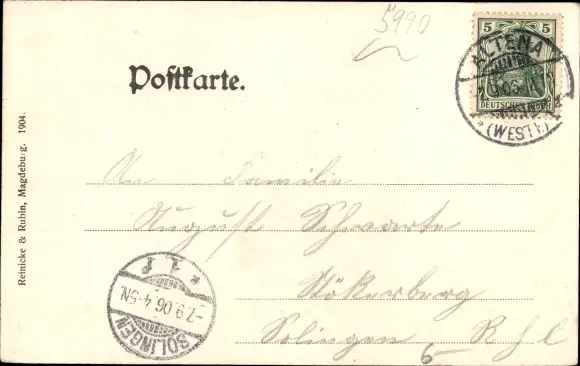 5990
Postkarte.
5 5
DEUTSCHES REICH
ALTENA
(WESTF.)
Reinicke & Rubin, Magdeburg. 1904.
An Familie
August Schwarte
Stökerberg
Solingen
6
SOLINGEN
-7.9.06.4-5N.
* 1 f